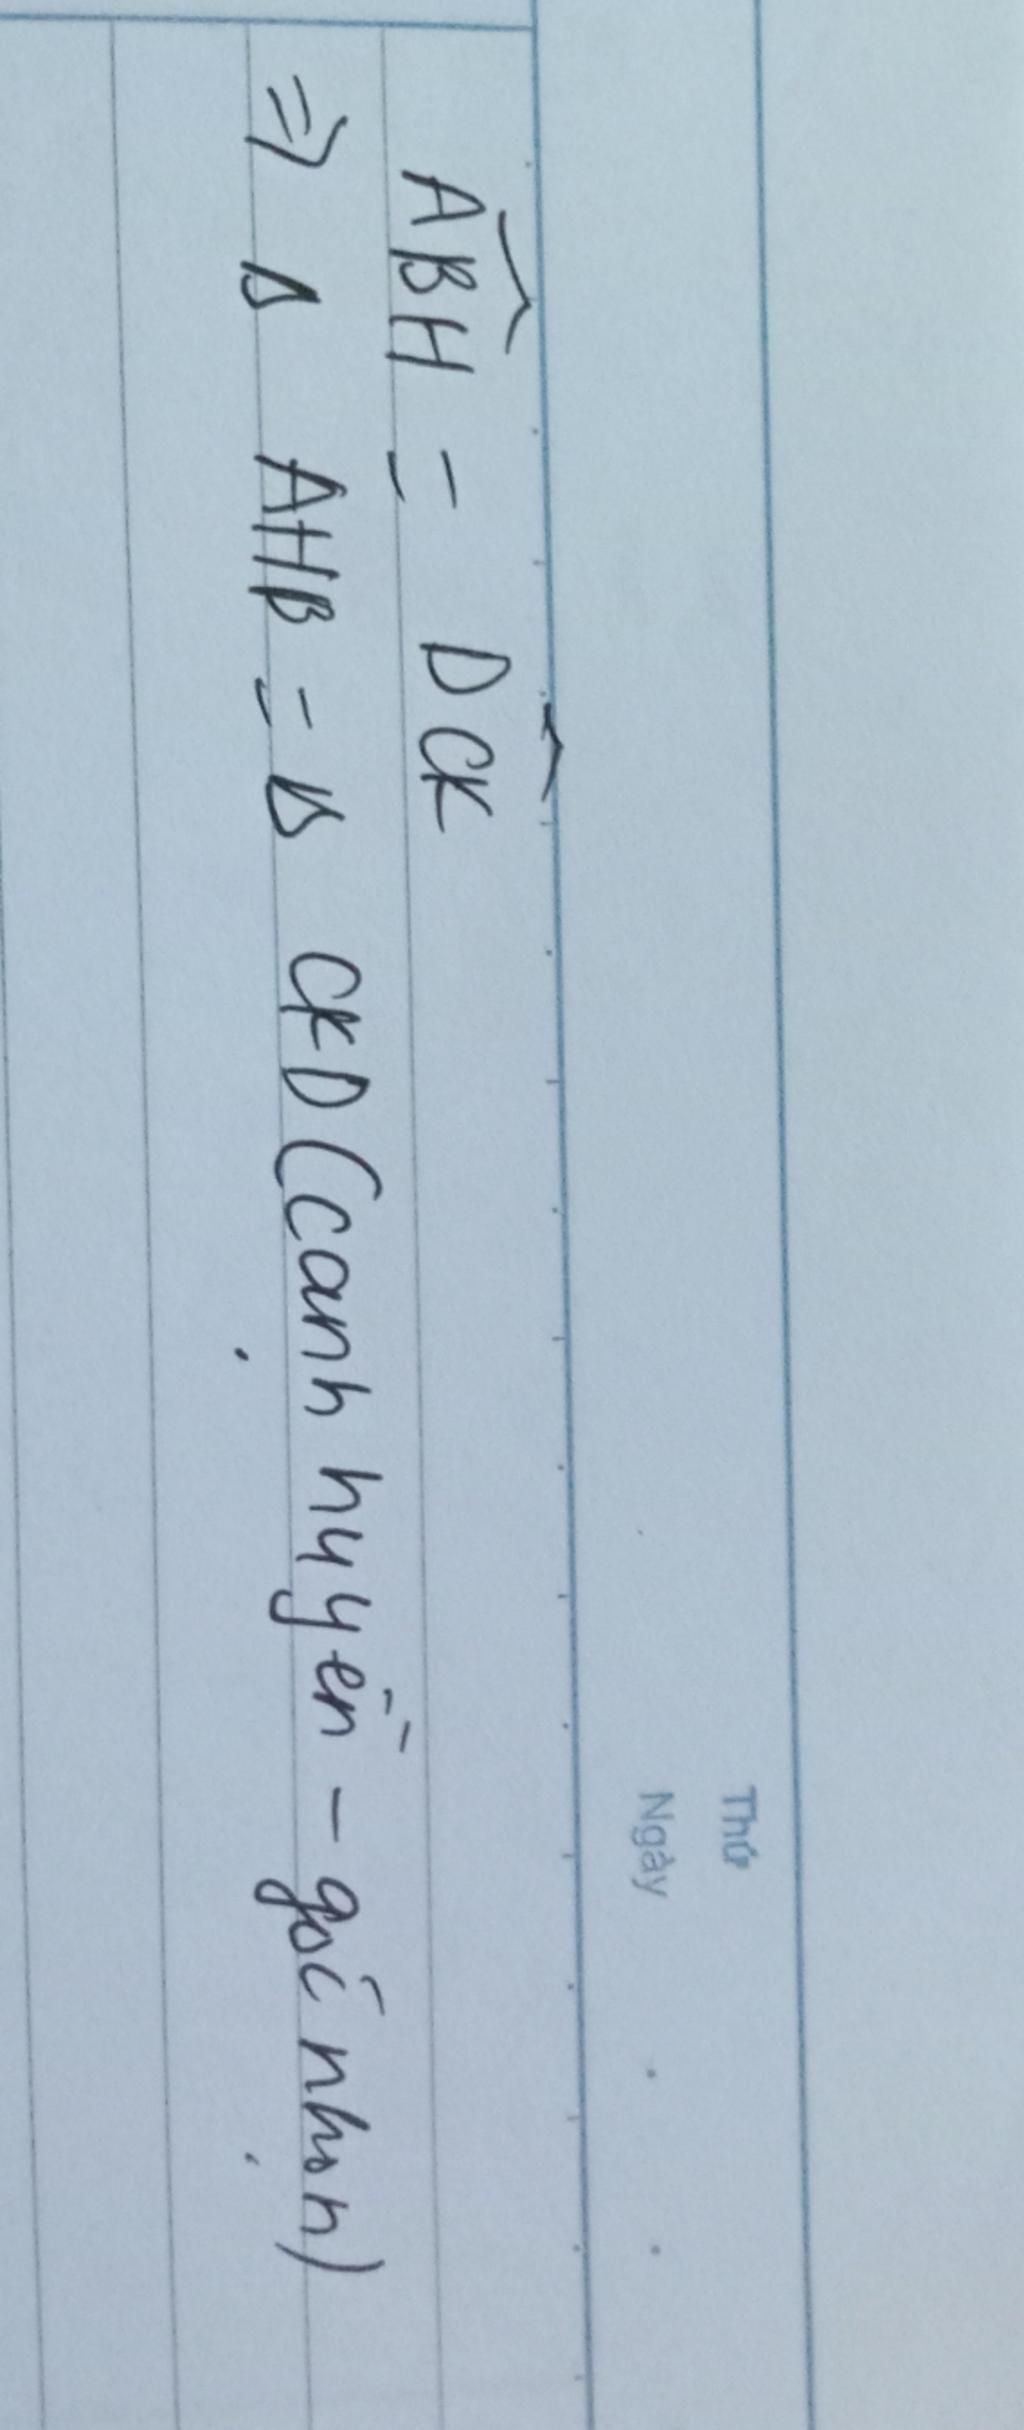 Thứ
Ngày
\widehat{ABH} = \widehat{DCK}
=> Δ AHB = Δ CKD (cạnh huyền - góc nhọn)